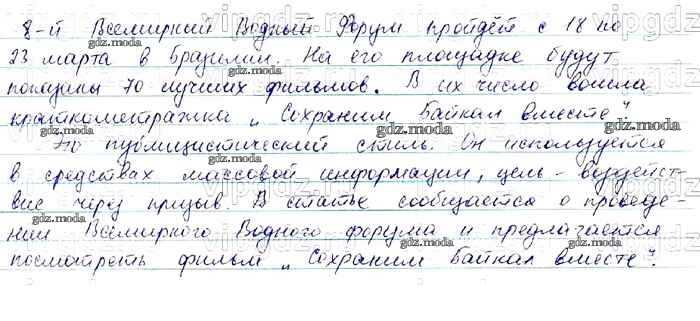 8-й Всемирный Водный Форум пройдёт с 18 по
23 марта в Бразилии. На его площадке будут
показаны 70 лучших фильмов. В их число вошла
краткометражка „Сохраним Байкал вместе"
Это публицистический стиль. Он используется
в средствах массовой информации, цель - воздейст-
вие через призыв. В статье сообщается о проведе-
нии Всемирного Водного форума и предлагается
посмотреть фильм „Сохраним Байкал вместе".